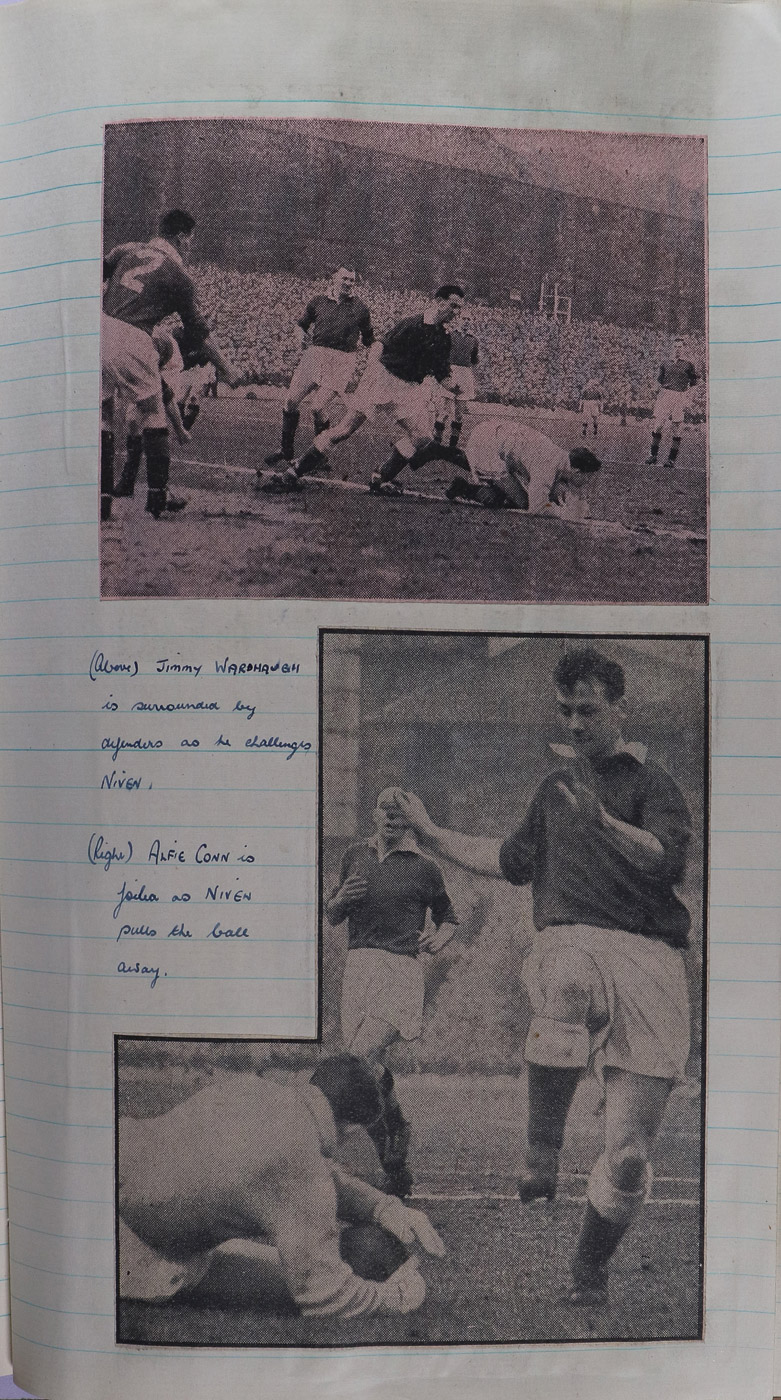 2
(Above) Jimmy WARDHAUGH
is surrounded by
defenders as he challenges
NIVEN.
(Right) ALFIE CONN is
foiled as NIVEN
pulls the ball
away.